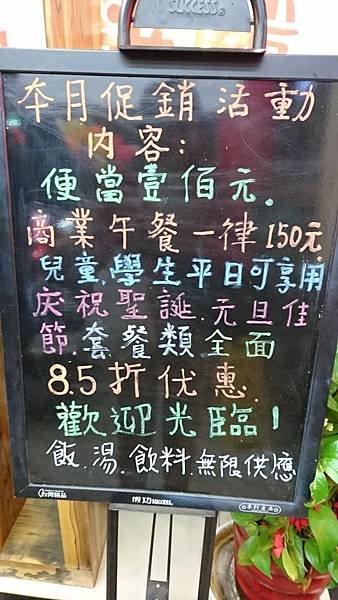 SUCCESS®
本月促銷活動
內容:
便當壹佰元.
商業午餐一律150元.
兒童.學生平日可享用
庆祝聖誕.元旦佳
節.套餐類全面
8.5折优惠.
歡迎光臨!
飯.湯.飲料.無限供應
成功SUCCESS.